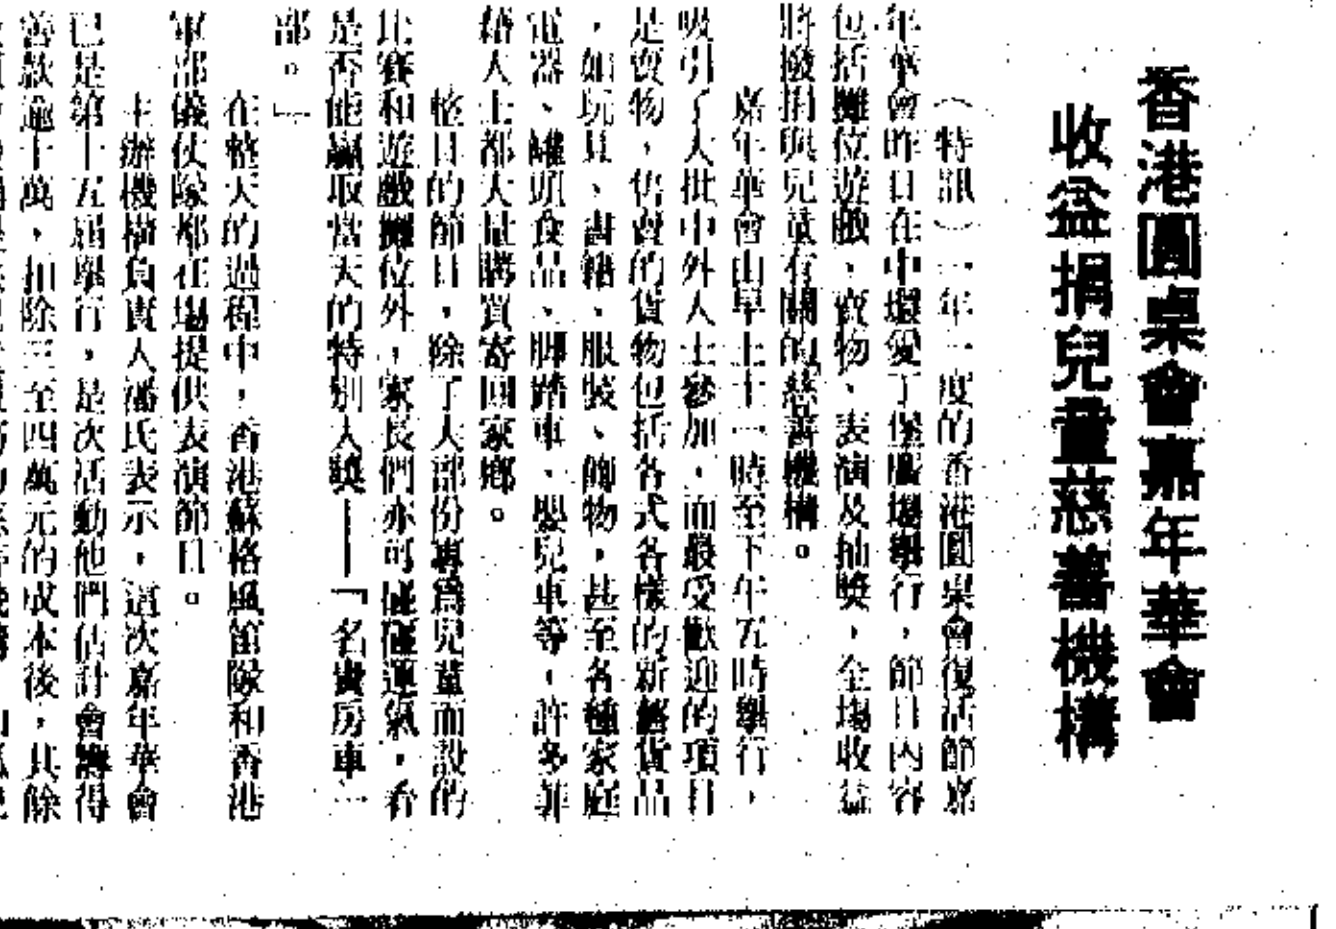 香港圓桌會嘉年華會
收益捐兒童慈善機構
（特訊）一年一度的香港圓桌會復活節嘉
年華會昨日在中環愛丁堡廣場舉行，節目內容
包括攤位遊戲、賣物、表演及抽獎，全場收益
將撥捐與兒童有關的慈善機構。
嘉年華會由早上十一時至下午五時舉行，
吸引了大批中外人士參加，而最受歡迎的項目
是賣物，售賣的貨物包括各式各樣的新舊貨品
，如玩具、書籍、服裝、飾物，甚至各種家庭
電器、罐頭食品、脚踏車、嬰兒車等，許多菲
籍人士都大量購買寄回家鄉。
整日的節目，除了大部份專爲兒童而設的
比賽和遊戲攤位外，家長們亦可碰碰運氣，看
是否能贏取當天的特別大獎——「名貴房車一
部。」
在整天的過程中，香港蘇格風笛隊和香港
軍部儀仗隊都在場提供表演節目。
主辦機構負責人潘氏表示，這次嘉年華會
已是第十五屆舉行，是次活動他們估計會籌得
善款逾十萬，扣除三至四萬元的成本後，其餘